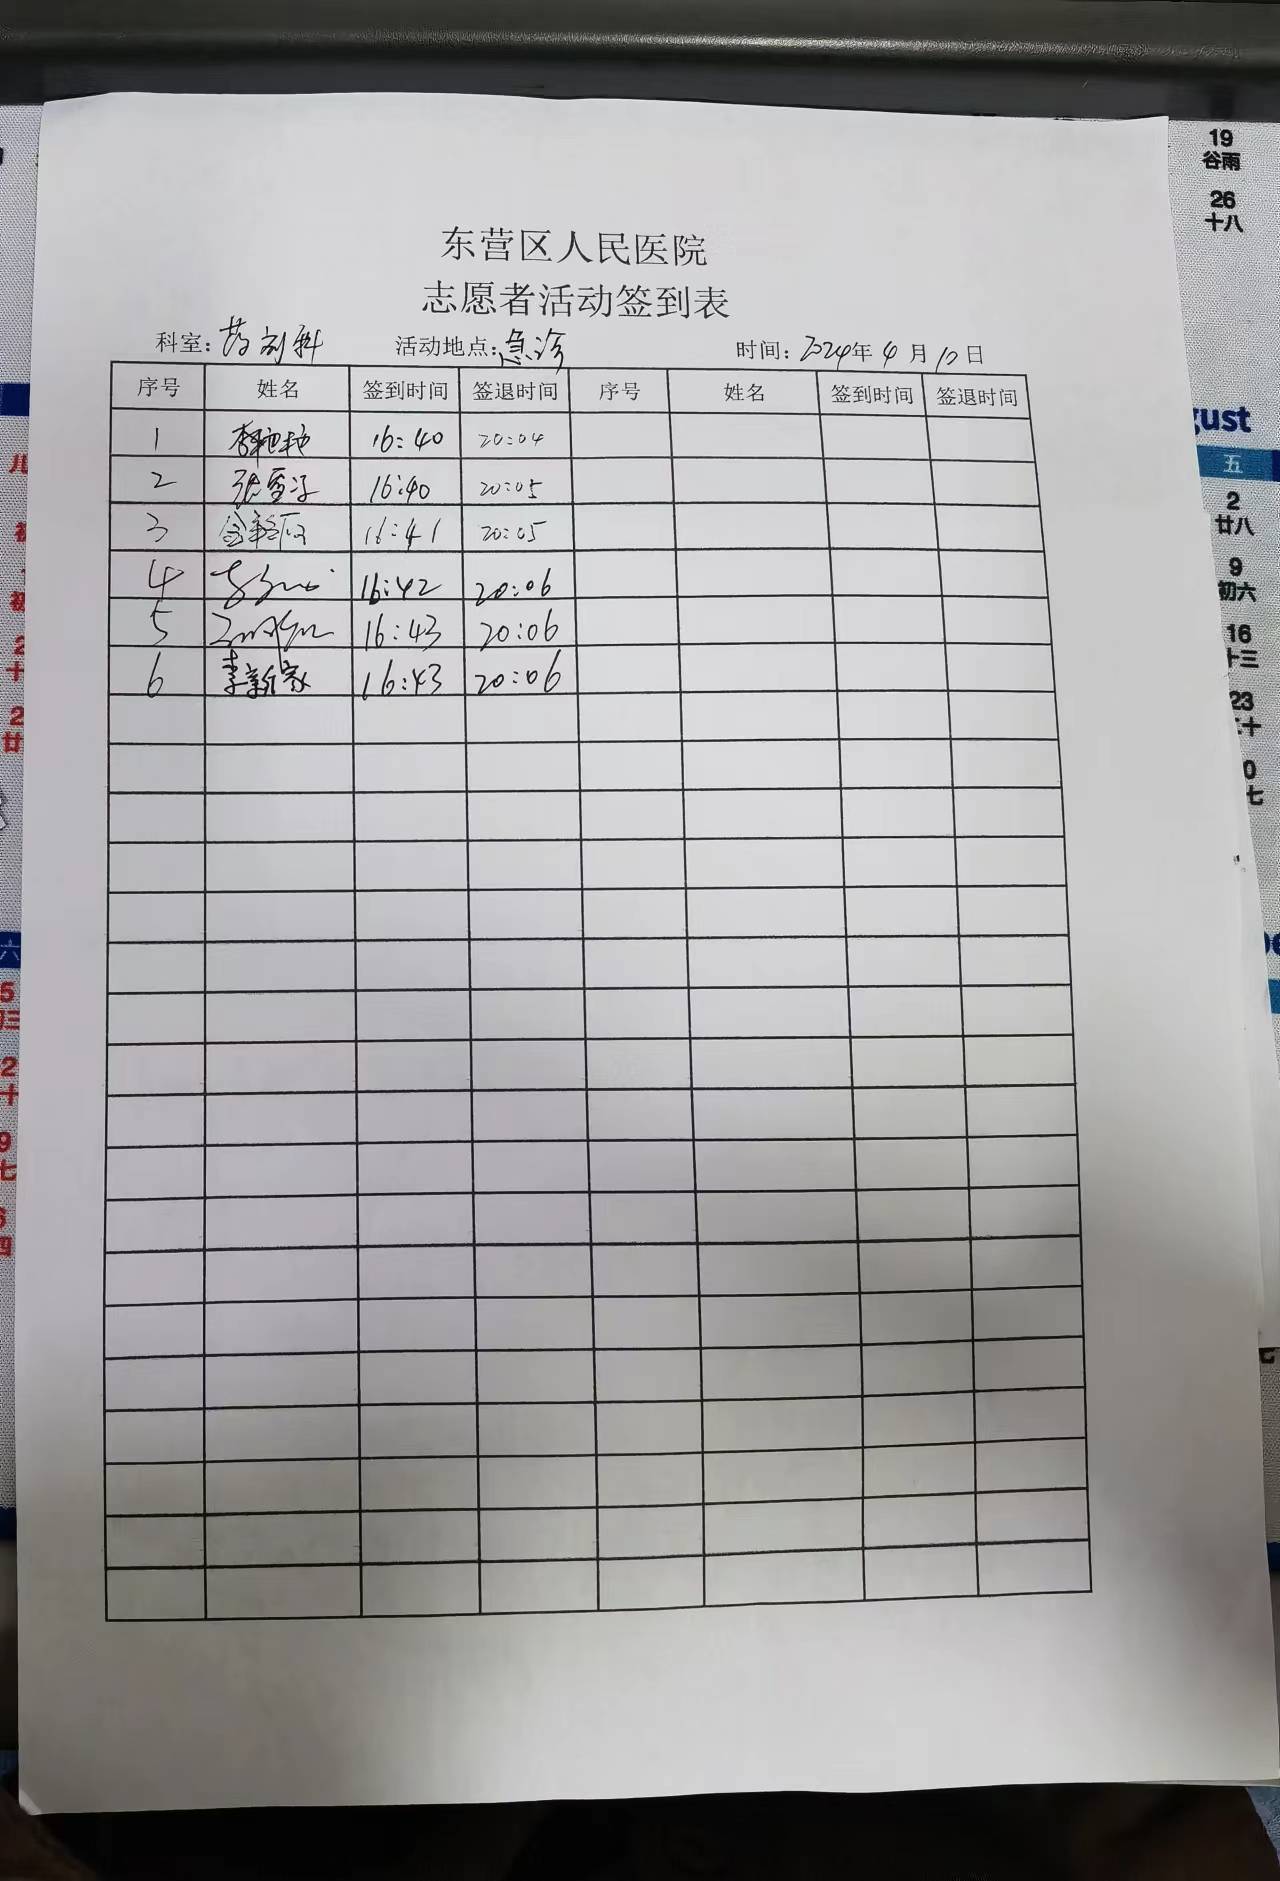 东营区人民医院
志愿者活动签到表
科室：药剂科 活动地点：急诊 时间：2024年4月10日
序号 姓名 签到时间 签退时间 序号 姓名 签到时间 签退时间
1 16:40 20:04
2 16:40 20:05
3 16:41 20:05
4 16:42 20:06
5 16:43 20:06
6 李新家 16:43 20:06
19
谷雨
26
十八
五
2
廿八
9
初六
16
十三
23